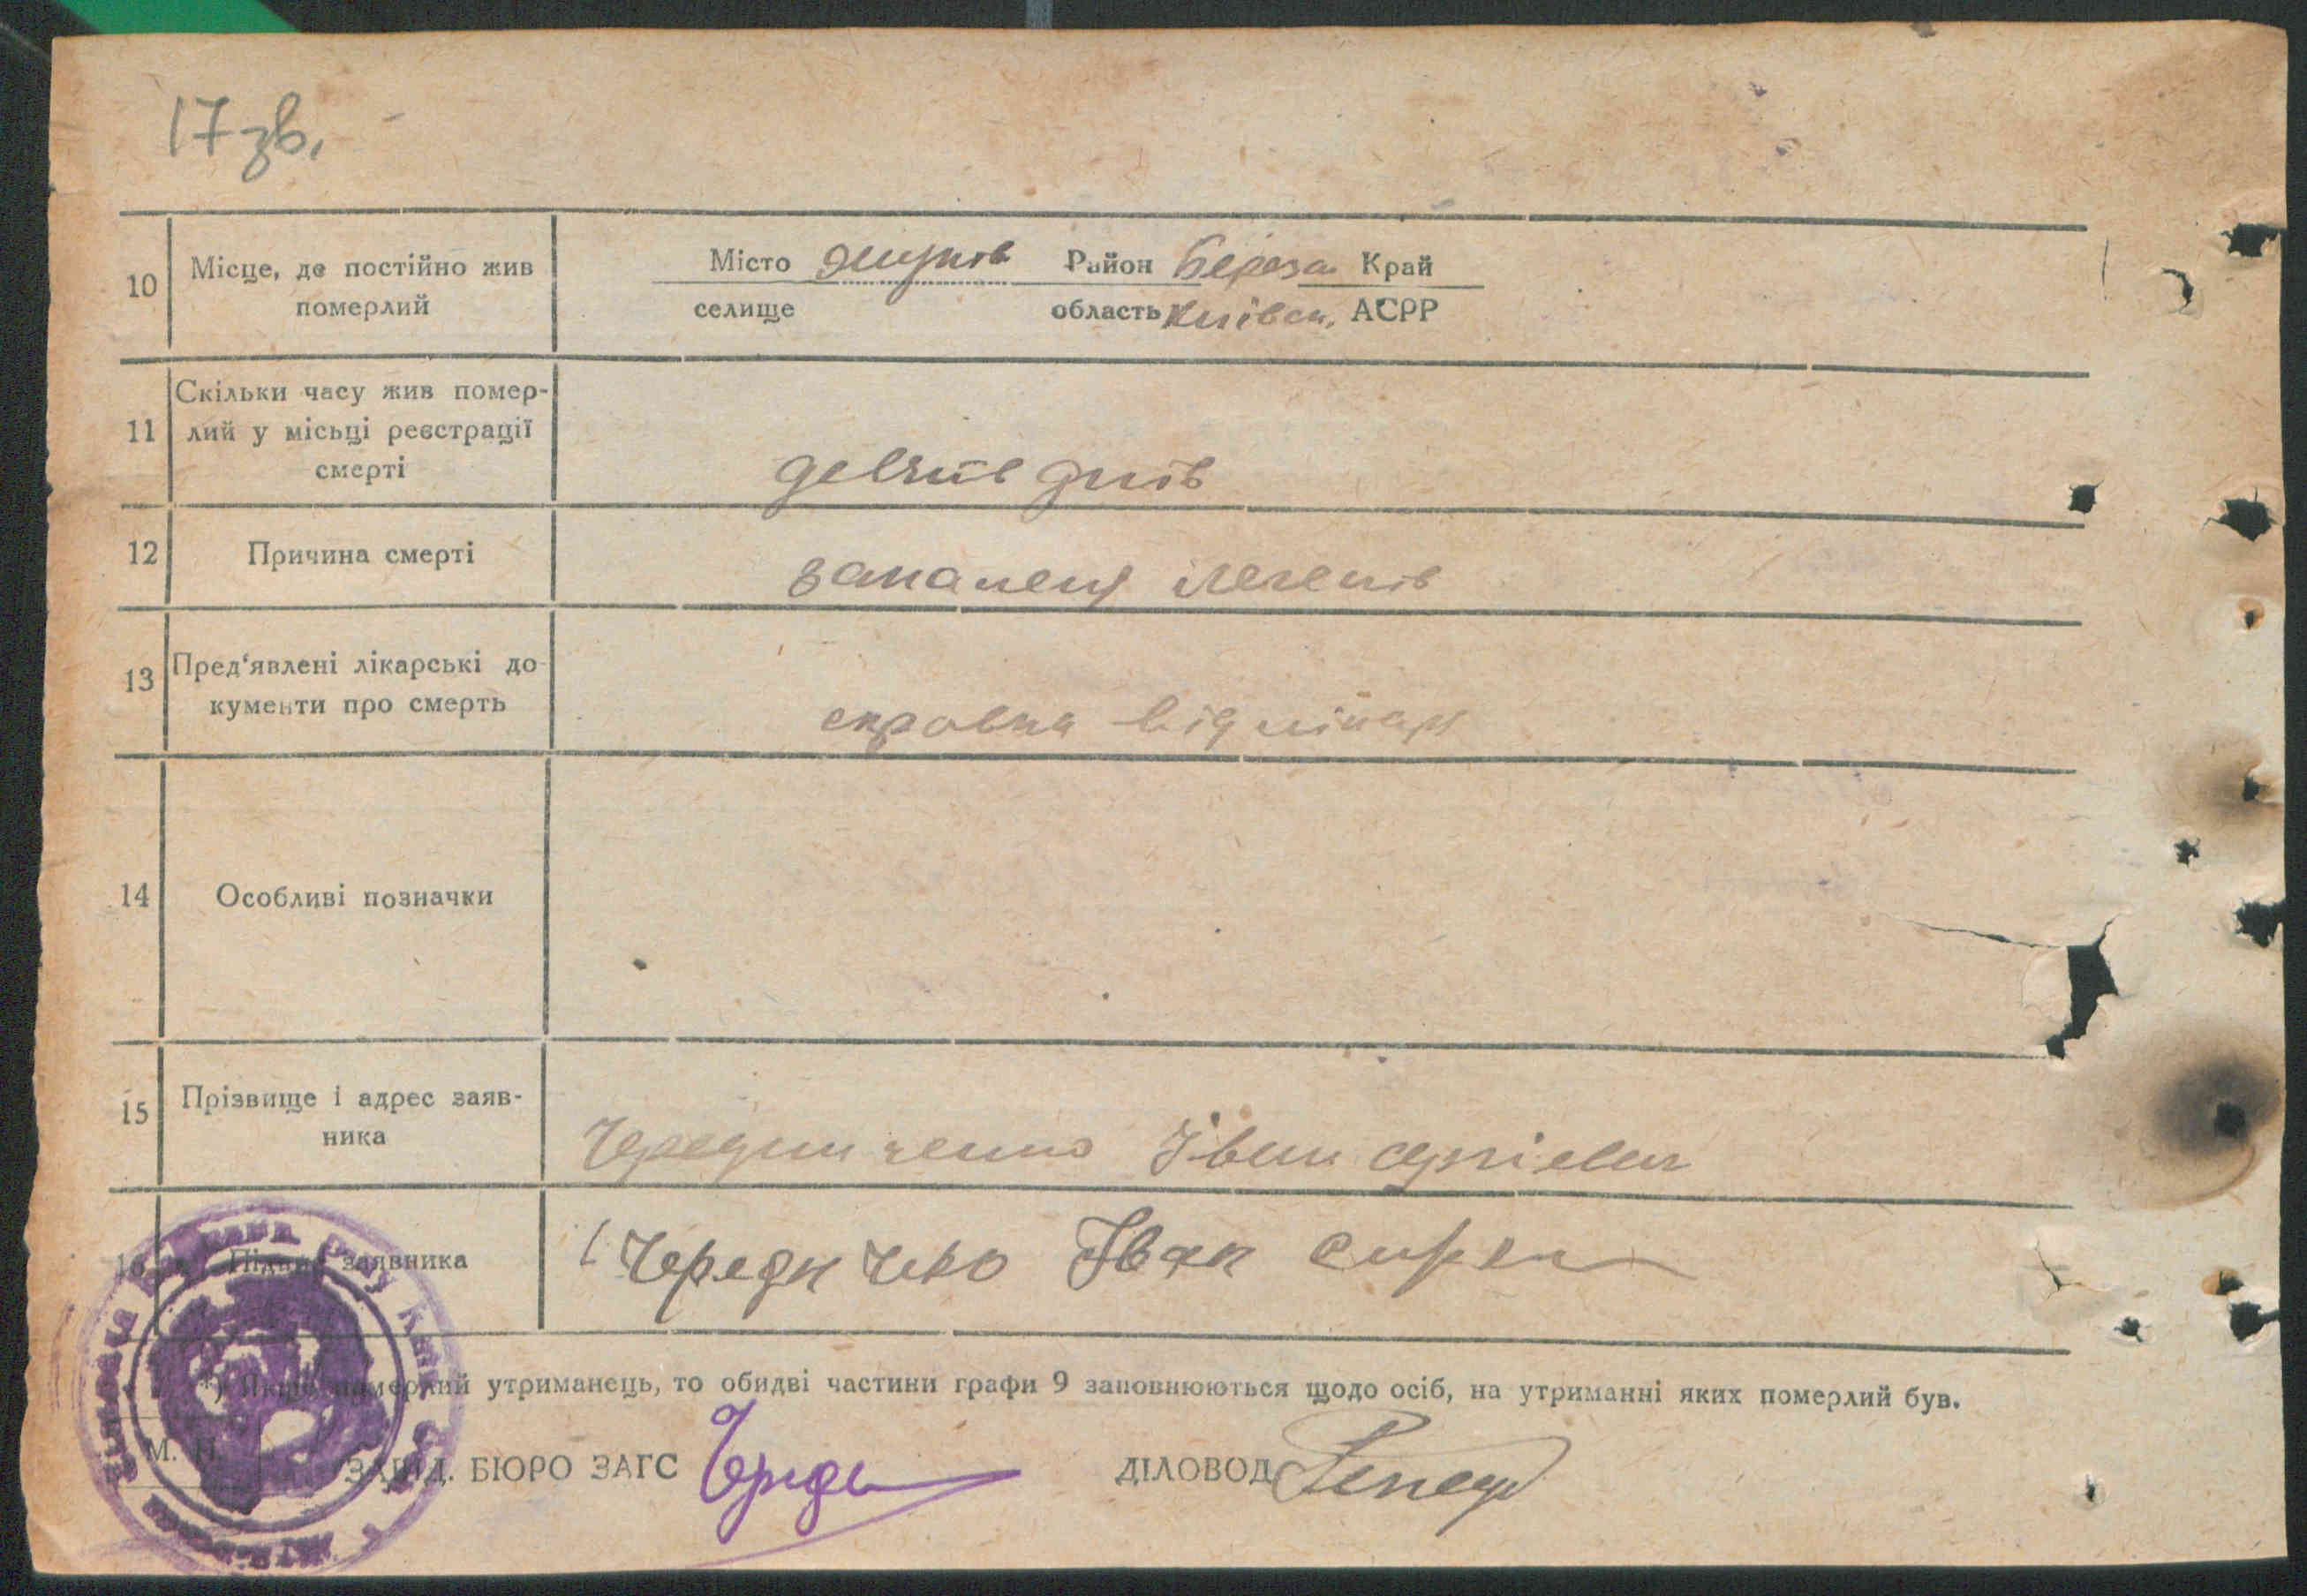 17 зв.
10 Місце, де постійно жив померлий
Місто Яжуків Район Береза Край
селище область Київськ. АСРР
11 Скільки часу жив помер-
лий у місьці реєстрації
смерті
девять днів
12 Причина смерті
запаленя легенів
13 Пред'явлені лікарські до-
кументи про смерть
справка від лікаря
14 Особливі позначки
15 Прізвище і адрес заяв-
ника
Чередниченко Іван
16 Підпис заявника
Чередниченко Іван
*) Якщо померлий утриманець, то обидві частини графи 9 заповнюються щодо осіб, на утриманні яких померлий був.
М. П.
ЗАВІД. БЮРО ЗАГС
ДІЛОВОД